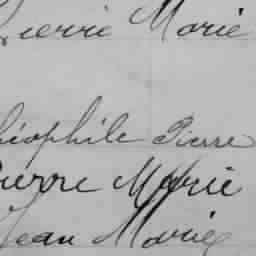 Pierre Marie
Théophile Pierre
Pierre Marie
Jean Marie